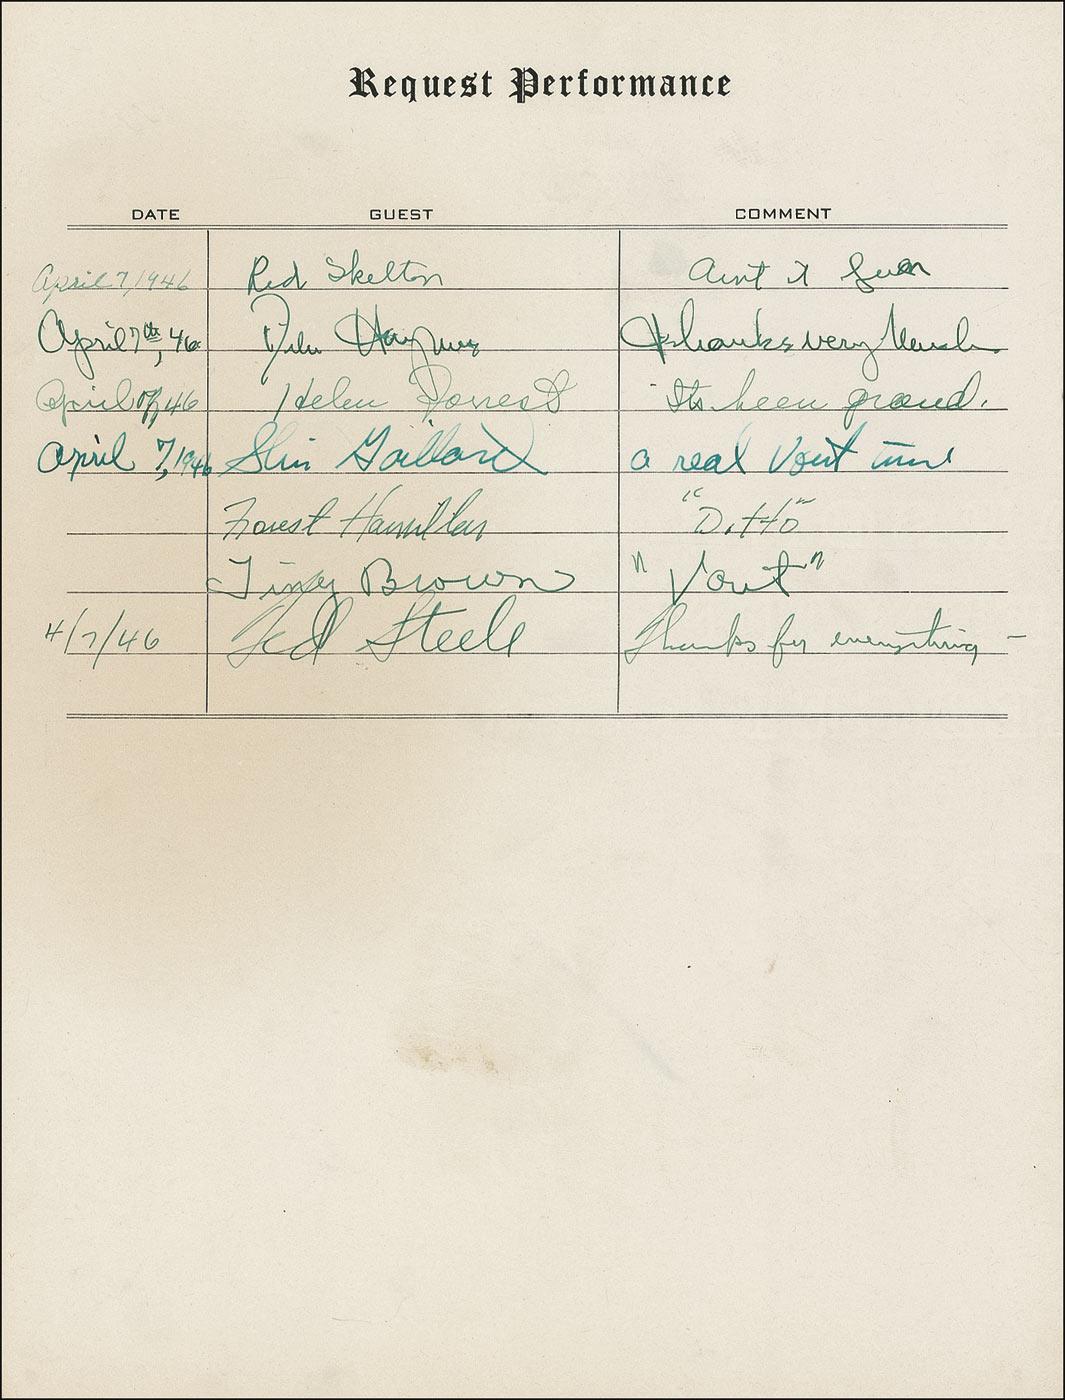 Request Performance
DATE GUEST COMMENT
April 7, 1946 Red Skelton Aint it fun
April 7th, 46 Dick Haymes Thanks very Much
April 7, 46 Helen Forrest Its been grand.
April 7, 1946 Slim Gaillard a real Vout time
Forest Hamilton "Ditto"
Tiny Brown "Vout"
4/7/46 Ted Steele Thanks for everything -